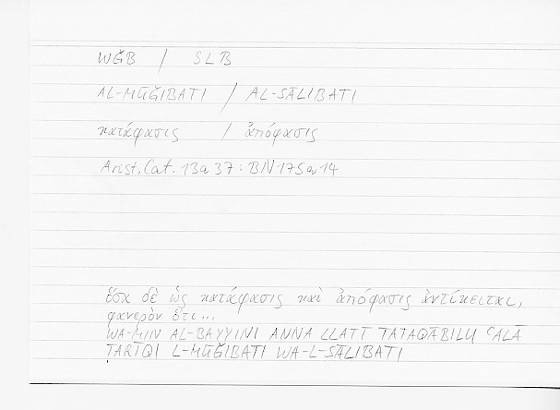 WǦB / SLB
AL-MŪǦIBATI / AL-SĀLIBATI
κατάφασις / ἀπόφασις
Arist. Cat. 13a37 : BN 175a14
ὅσα δὲ ὡς κατάφασις καὶ ἀπόφασις ἀντίκειται,
φανερὸν ὅτι...
WA-MIN AL-BAYYINI ANNA LLATĪ TATAQĀBALU ʿALĀ
TARĪQI L-MŪǦIBATI WA-L-SĀLIBATI